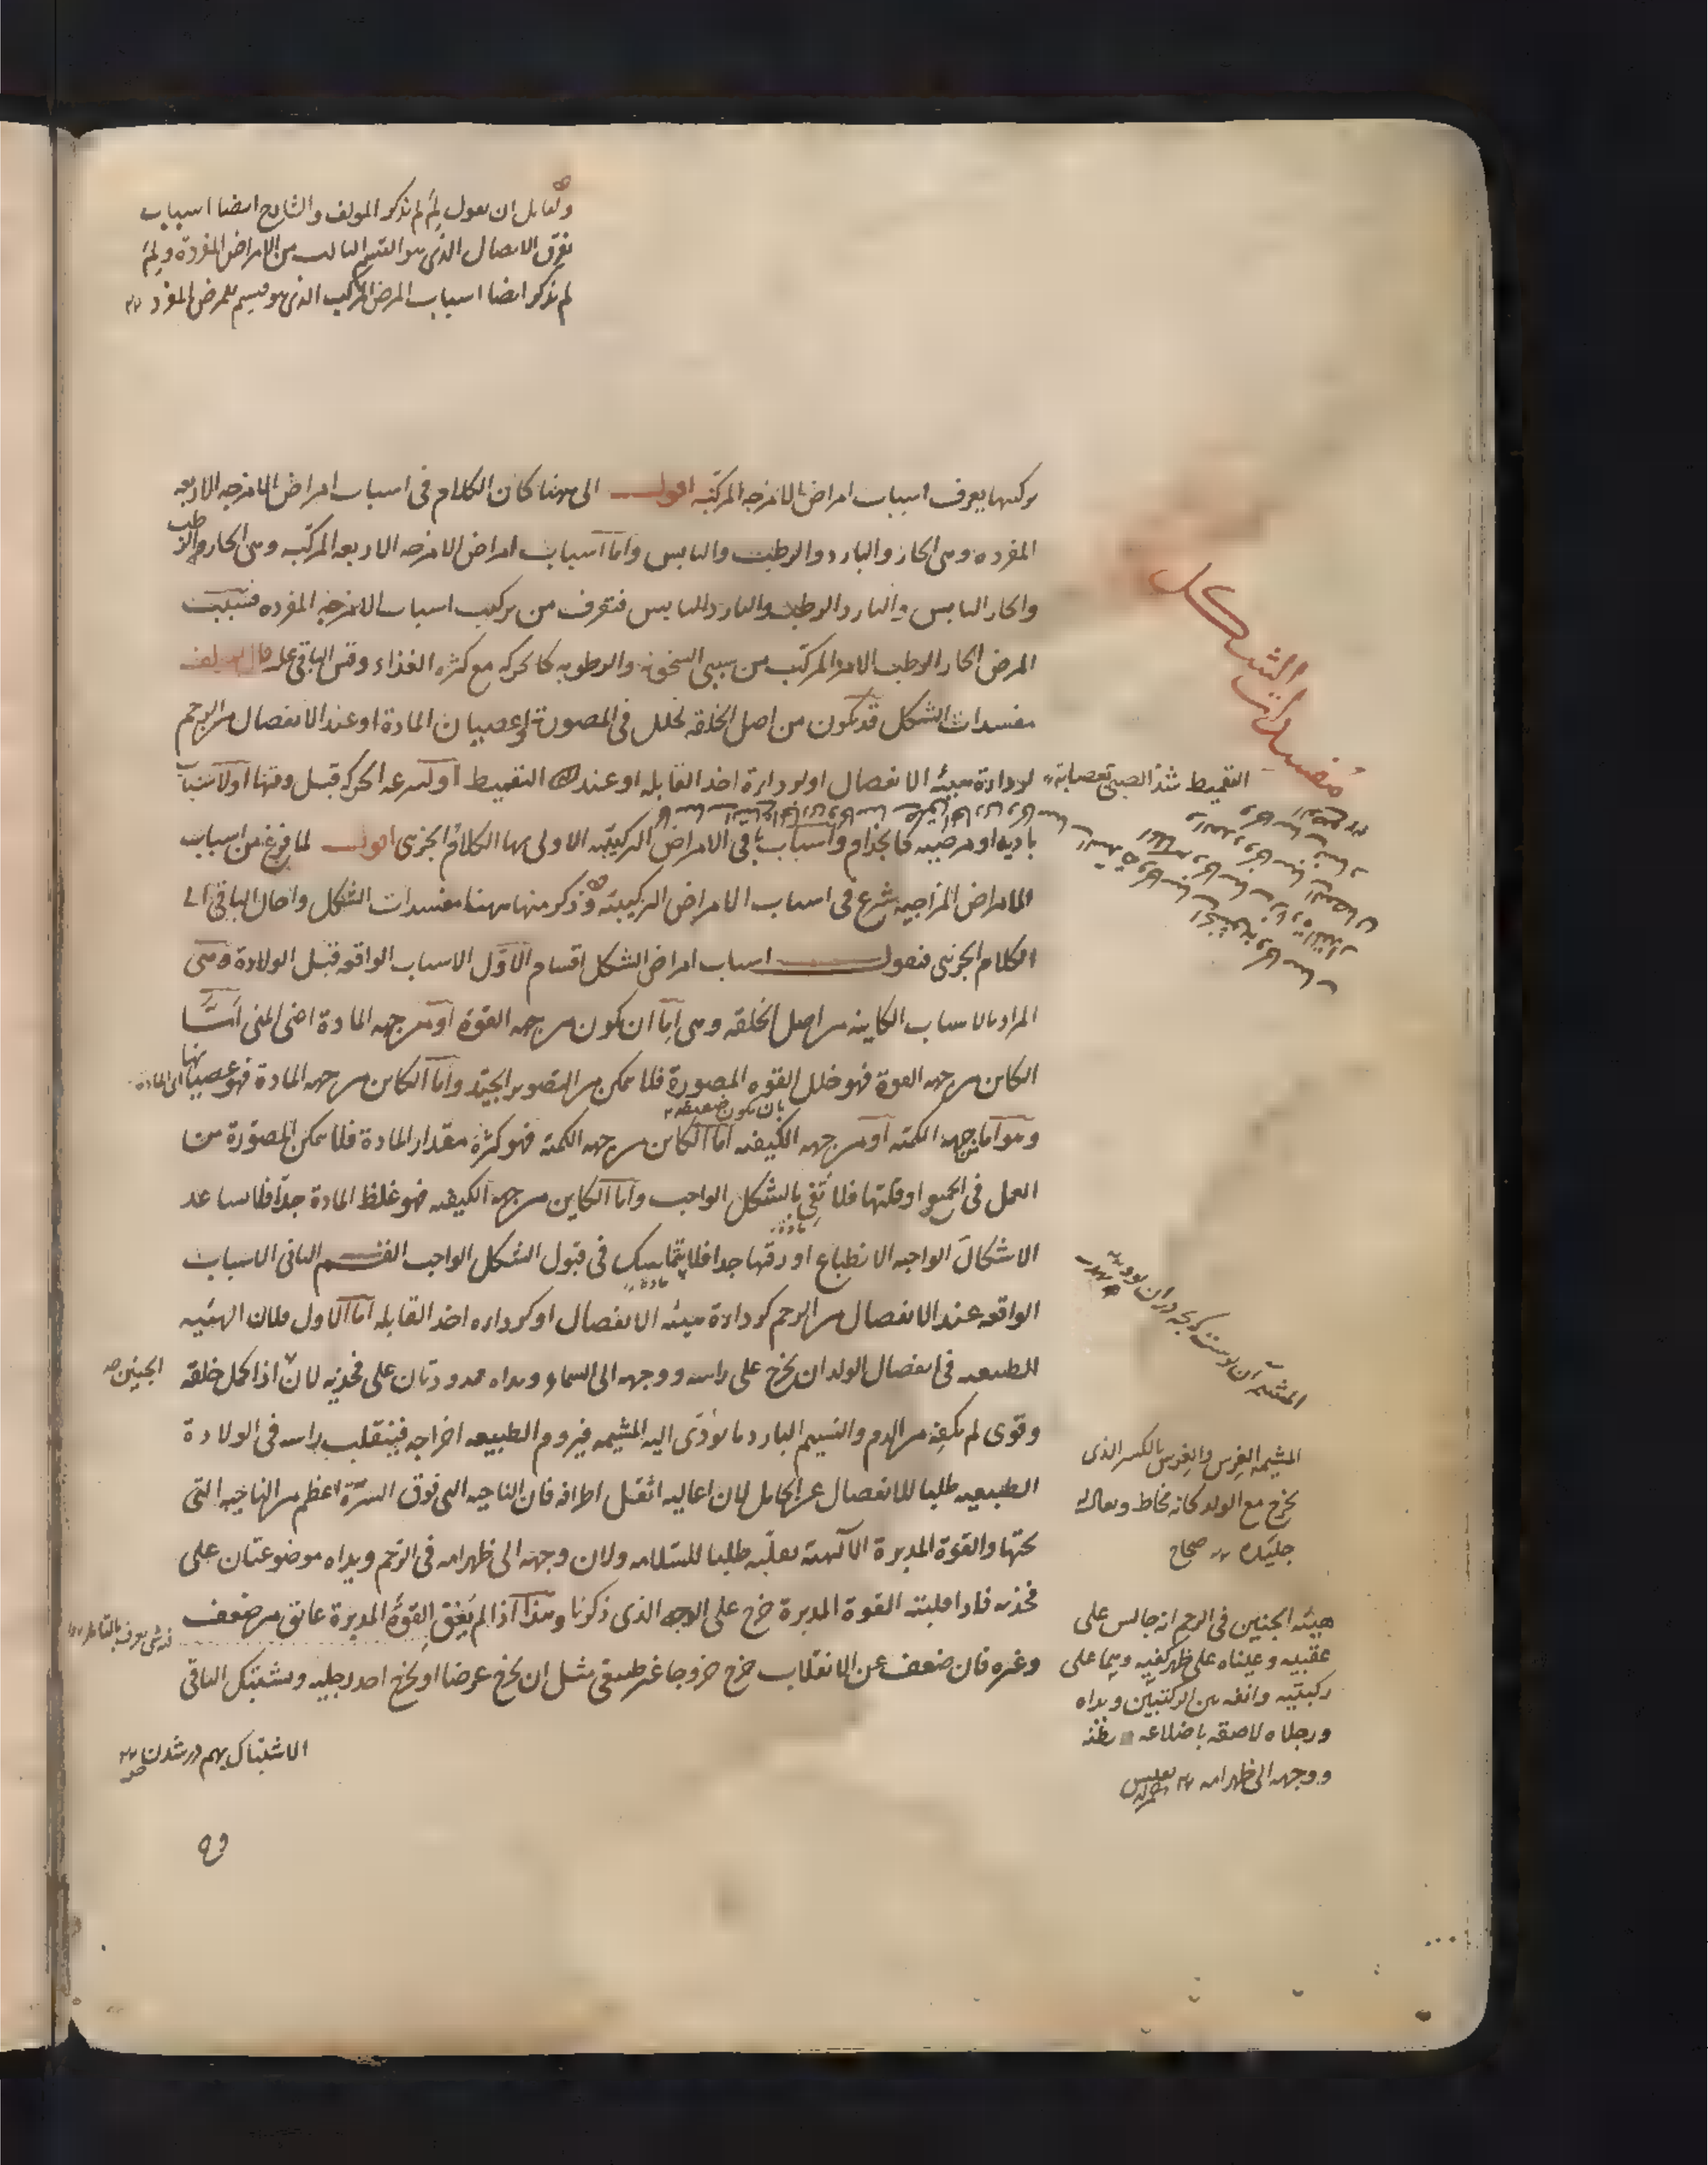 ولقايل ان يعول لِمَ لم يذكر المولف والشارح ايضا اسباب
تفرق الاتصال الذى هو القسم الثالث من الامراض المفردة ولِمَ
لم يذكر ايضا اسباب المرض المركب الذى هو قسيم للمرض المفرد
تركيبها يعرف اسباب امراض الامزجه المركبه اقول الى ههنا كان الكلام فى اسباب امراض الامزجه الاربعه
المفرده وهى الحار والبارد والرطب واليابس واما اسباب امراض الامزجه الاربعه المركبه وهى الحار والرطب
والحار اليابس والبارد الرطب والبارد اليابس فتعرف من تركيب اسباب الامزجه المفرده فسبب
المرض الحار الرطب الامر المركب من سببى السخونه والرطوبه كالحركه مع كثره الغذاء وقس الباقى عليه قال المولف
مفسدات الشكل قد تكون من اصل الخلقه لخلل فى المصورة او عصيان المادة او عند الانفصال من الرحم
لرداءة هيئه الانفصال او لرداءة اخذ القابله او عند التقميط او لسرعه الحركه قبل وقتها او لاسباب
باديه او مرضيه كالجذام واسباب باقى الامراض التركيبيه الاولى بها الكلام الجزئى اقول لما فرغ من اسباب
الامراض المزاجيه شرع فى اسباب الامراض التركيبيه وذكر منها ههنا مفسدات الشكل واحال الباقى الى
الكلام الجزئى فنقول اسباب امراض الشكل اقسام الاول الاسباب الواقعه قبل الولادة وهى
المراد بالاسباب الكاينه من اصل الخلقه وهى اما ان يكون من جهه القوة او من جهه المادة اعنى المنى امّا
الكاين من جهه القوة فهو خلل القوه المصورة فلا يمكن من التصوير الجيد واما الكاين من جهه المادة فهو عصيانها
اى المادة
بان تكون ضعيفه
وهو اما من جهه الكميه او من جهه الكيفيه اما الكاين من جهه الكميه فهو كثرة مقدار المادة فلا يمكن المصورة من
العمل فى الجميع او قلتها فلا تفى بالشكل الواجب واما الكاين من جهه الكيفيه فهو غلظ المادة جدا فلا يساعد
الاشكال الواجبه الانطباع او رقتها جدا فلا يتماسك فى قبول الشكل الواجب القسم الثانى الاسباب
الواقعه عند الانفصال من الرحم كرداءة هيئه الانفصال او كرداءه اخذ القابله اما الاول فلان الهيئه
الطبيعيه فى انفصال الولد ان يخرج على راسه ووجهه الى السماء ويداه ممدودتان على فخذيه لان اذا كمل خلقه
الجنين
وقوى لم يكفه من الدم والنسيم البارد ما يؤدى اليه المشيمه فيروم الطبيعه اخراجه فينقلب براسه فى الولادة
الطبيعيه طلبا للانفصال عن الحامل لان اعاليه اثقل اطرافه فان الناحيه التى فوق السرة اعظم من الناحيه التى
تحتها والقوة المدبرة الالهيه تقلبه طلبا للسلامه ولان وجهه الى ظهر امه فى الرحم ويداه موضوعتان على
فخذيه فاذا قلبته القوة المدبرة خرج على الوجه الذى ذكرنا وهذا اذا لم يعق القوة المدبرة عائق من ضعف
وغيره فان ضعف عن الانقلاب خرج خروجا غير طبيعى مثل ان يخرج عرضا او يخرج احد رجليه ويشتبك الباقى
الاشتباك بهم درشدن
مفسدات الشكل
التقميط شدّ الصبى بعصابة
المشيمه الغِرس والغِرس بالكسر الذى
يخرج مع الولد كانه مخاط ويقال له
جليده صحاح
هيئه الجنين فى الرحم انه جالس على
عقبيه وعيناه على ظهر كفيه وهما على
ركبتيه وانفه بين الركبتين ويداه
ورجلاه لاصقه باضلاعه
ووجهه الى ظهر امه